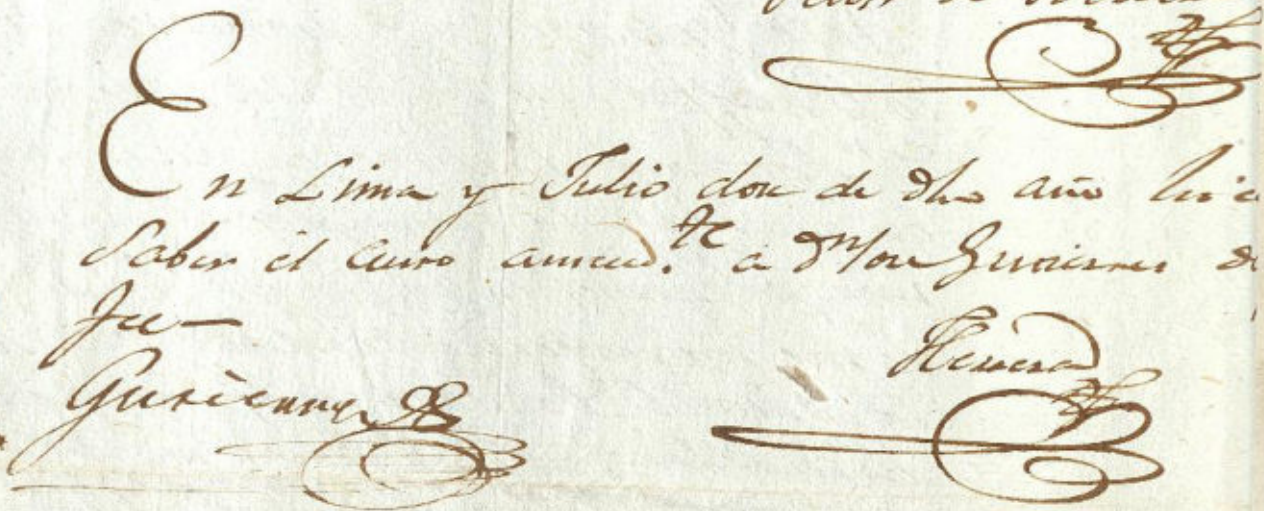 En Lima y Julio doce de dho año hice
Saber el Auto anteced.te a Dn Jose Gutierres de
fee—
Gutierrez
Herrera